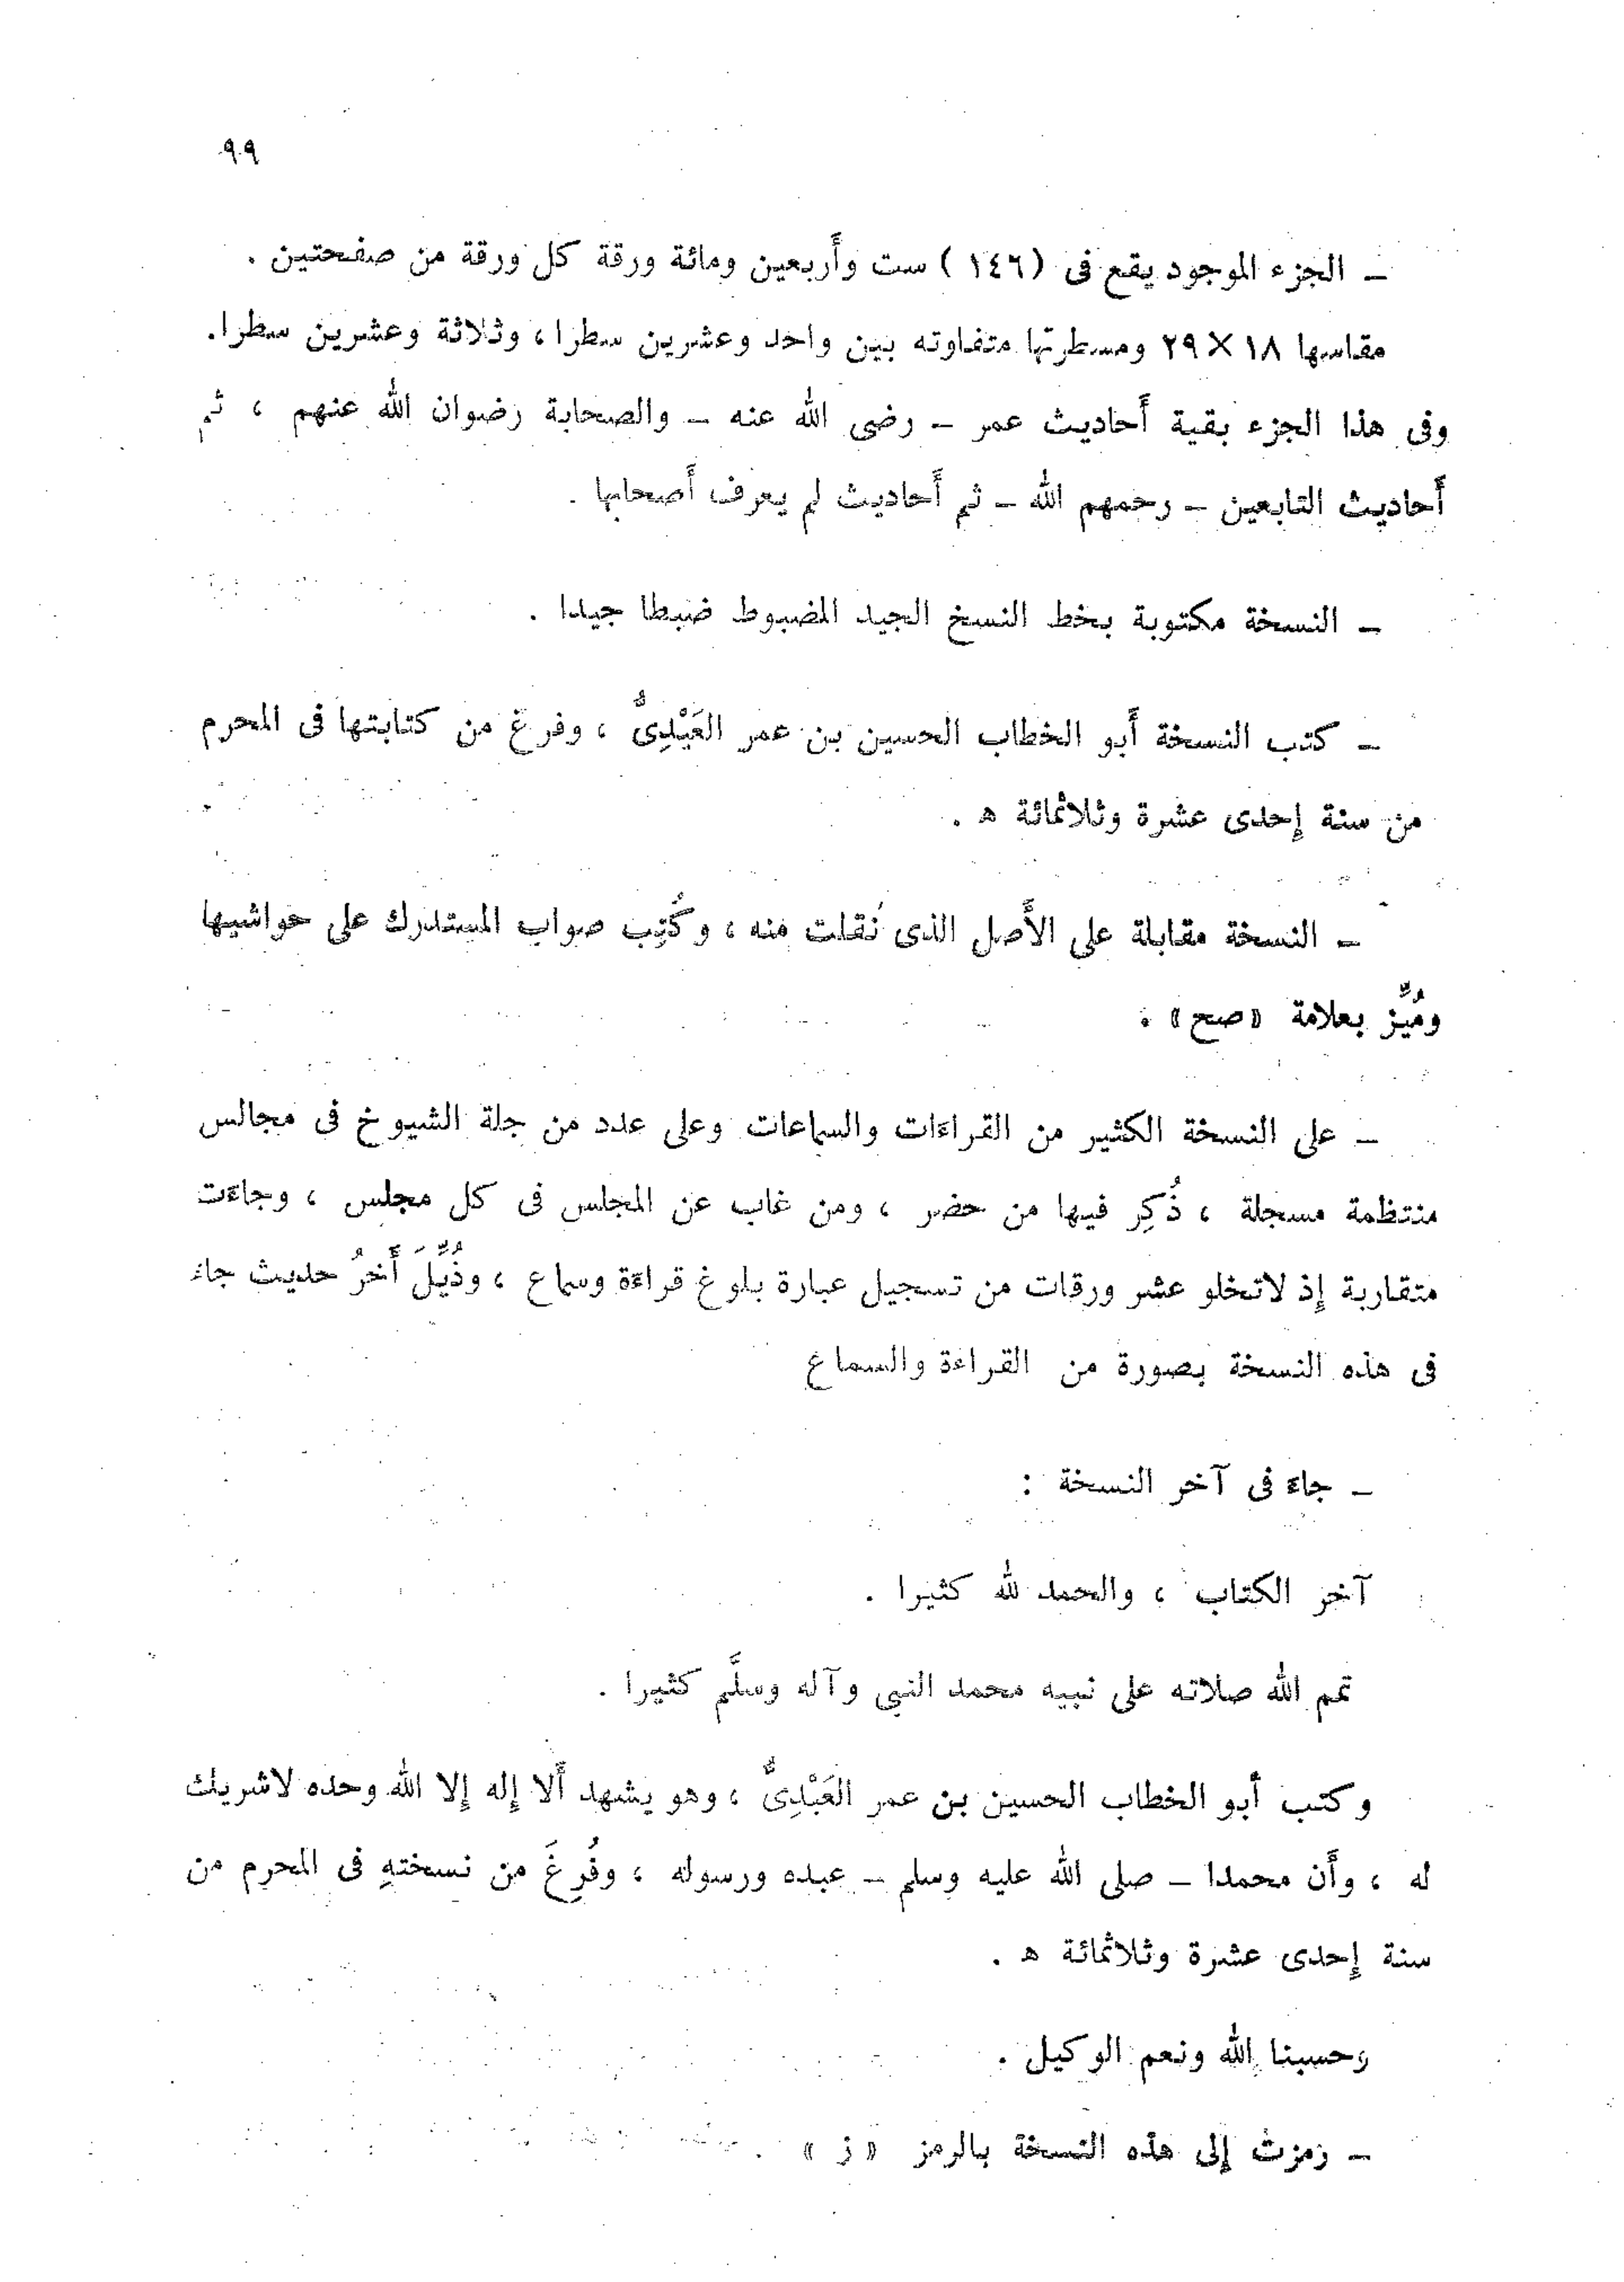 ٩٩
ـ الجزء الموجود يقع فى (١٤٦) ست وأَربعين ومائة ورقة كل ورقة من صفحتين .
مقاسها ١٨ × ٢٩ ومسطرتها متفاوته بين واحد وعشرين سطرا ، وثلاثة وعشرين سطرا.
وفى هذا الجزء بقية أَحاديث عمر ـ رضى الله عنه ـ والصحابة رضوان الله عنهم ، ثم
أَحاديث التابعين ـ رحمهم الله ـ ثم أَحاديث لم يعرف أَصحابها .
ـ النسخة مكتوبة بخط النسخ الجيد المضبوط ضبطا جيدا .
ـ كتب النسخة أَبو الخطاب الحسين بن عمر العَبْدِىُّ ، وفرغ من كتابتها فى المحرم
من سنة إِحدى عشرة وثلاثمائة ه .
ـ النسخة مقابلة على الأَصل الذى نُقلت منه ، وكُتِب صواب المستدرك على حواشيها
ومُيِّز بعلامة «صح» .
ـ على النسخة الكثير من القراءَات والسماعات وعلى عدد من جلة الشيوخ فى مجالس
منتظمة مسجلة ، ذُكِر فيها من حضر ، ومن غاب عن المجلس فى كل مجلس ، وجاءَت
متقاربة إِذ لاتخلو عشر ورقات من تسجيل عبارة بلوغ قراءَة وسماع ، وذُيِّلَ أَخرُ حديث جاءَ
فى هذه النسخة بصورة من القراءة والسماع
ـ جاءَ فى آخر النسخة :
آخر الكتاب ، والحمد لله كثيرا .
تمم الله صلاته على نبيه محمد النبى وآله وسلَّم كثيرا .
وكتب أَبو الخطاب الحسين بن عمر العَبْدِىُّ ، وهو يشهد أَلا إِله إِلا الله وحده لاشريك
له ، وأَن محمدا ـ صلى الله عليه وسلم ـ عبده ورسوله ، وفُرِغَ من نسختهِ فى المحرم من
سنة إِحدى عشرة وثلاثمائة ه .
وحسبنا الله ونعم الوكيل .
ـ رمزت إِلى هذه النسخة بالرمز « ز » .